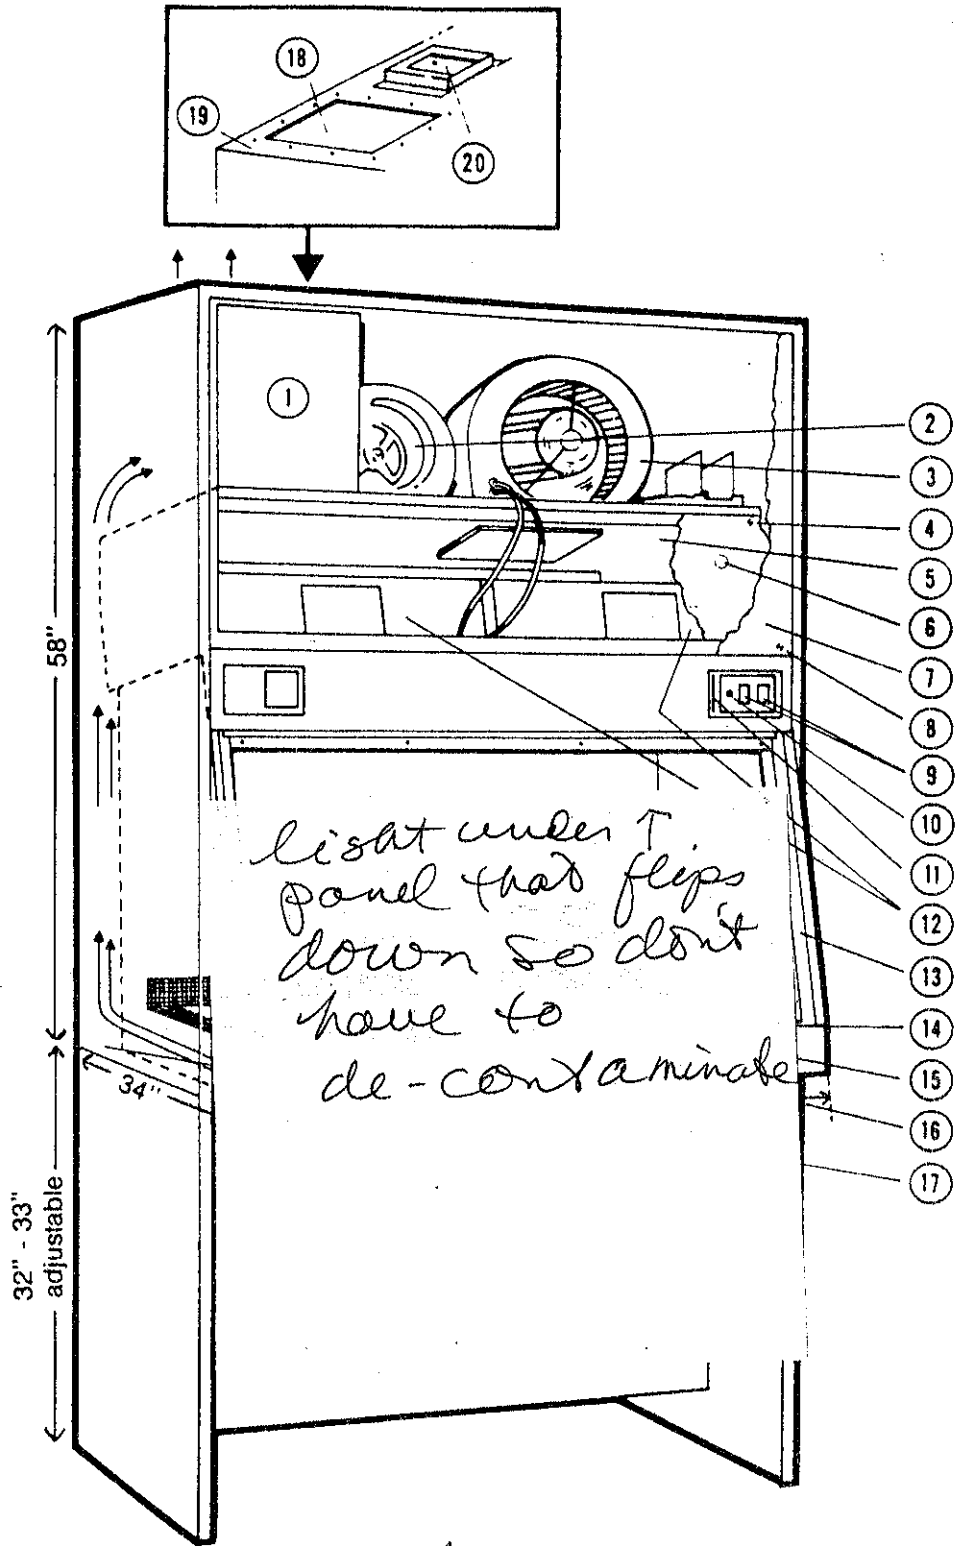 18
19
20
1
2
3
4
5
6
7
8
9
10
11
12
13
14
15
16
17
58"
34"
32" - 33"
adjustable
light under ↑
panel that flips
down so don't
have to
de-contaminate